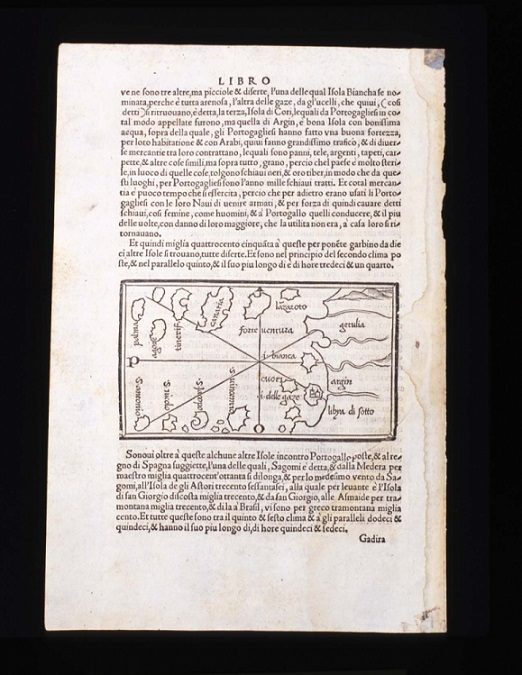 LIBRO
ve ne sono tre altre, ma picciole & diserte, l'una delle qual Isola Biancha se no-
minata, perche è tutta arenosa, l'altra delle gaze, da gl'ucelli, che quiui, (cosi
detti) si ritruouano, è detta, la terza, Isola di Cori, lequali da Portogagliesi in co
tal modo appellate furono, ma quella di Argin, e bona Isola con bonissima
acqua, sopra della quale, gli Portogagliesi hanno fatto vna buona fortezza,
per loro habitatione & con Arabi, quiui fanno grandissimo trafico, & di diuer
se mercantie tra loro contrattano, lequali sono panni, tele, argenti, tapeti, car-
pette, & altre cose simili, ma sopra tutto, grano, percio che l paese è molto steri-
le, in luoco di quelle cose, tolgono schiaui neri, & oro tiber, in modo che da que
sti luoghi, per Portogagliesi sono l'anno mille schiaui tratti. Et cotal mercan-
tia è puoco tempo che si essercita, percio che per adietro erano usati li Porto-
gagliesi con le loro Naui di uenire armati, & per forza di quindi cauare detti
schiaui, cosi femine, come huomini, & à Portogallo quelli conducere, & il piu
delle uolte, con danno di loro maggiore, che la utilita non era, à casa loro si ri-
tornauano.
Et quindi miglia quattrocento cinquãta à queste per ponẽte garbino da die
ci altre Isole si trouano, tutte diserte. Et sono nel principio del secondo clima po
ste, & nel parallelo quinto, & il suo piu longo di è di hore tredeci & un quarto.
palma
gomera
tinerif
canaria
forte uentura
lãzaroto
getulia
P
i. bianca
cuori
i. delle gaze
argin
libia di sotto
s. antonio
s. nicolo
s. iacopo
O
Sonoui oltre à queste alchune altre Isole incontro Portogallo poste, & al re-
gno di Spagna suggiette, l'una delle quali, Sagomi è detta, & dalla Medera per
maestro miglia quattrocent'ottanta si dilonga, & per lo medesimo vento da Sa-
gomi, all'Isola de gli Astori trecento sessantasei, alla quale per leuante è l'Isola
di san Giorgio discosta miglia trecento, & da san Giorgio, alle Asmaide per tra-
montana miglia trecento, & di la à Brasil, vi sono per greco tramontana miglia
cento. Et tutte queste sono tra il quinto & sesto clima & à gli paralleli dodeci &
quindeci, & hanno il suo piu longo di, di hore quindeci & sedeci.
Gadira